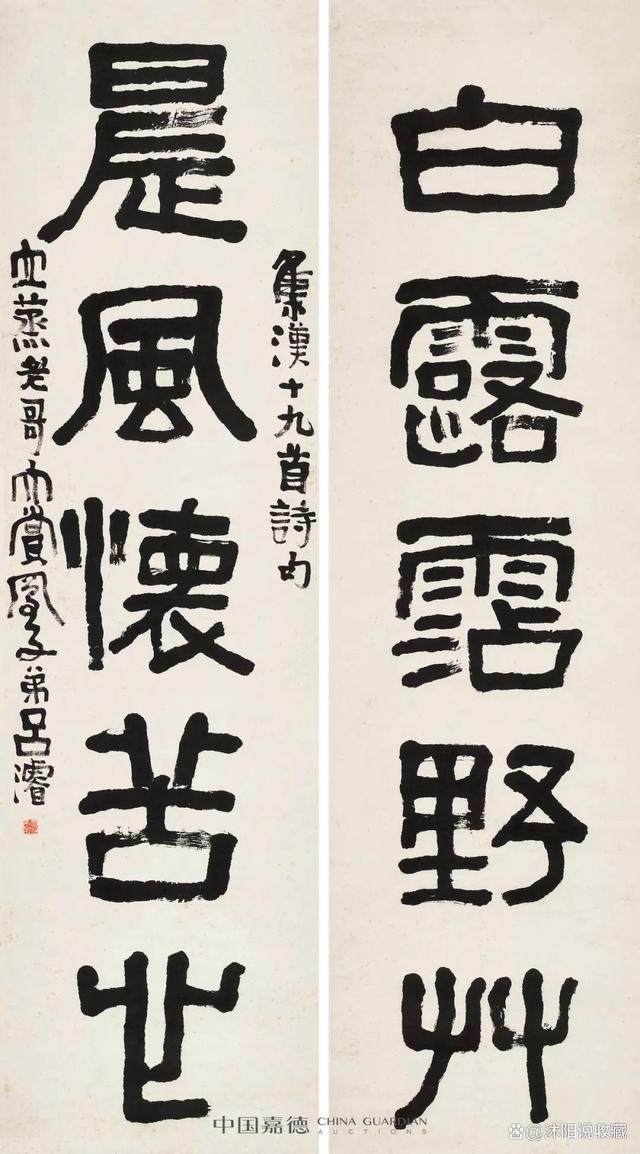 白露霑野艸
晨風懷苦心
集漢十九首詩句
立蒸老哥大賞鳳子弟呂濬
中国嘉德 CHINA GUARDIAN
AUCTIONS
沐阳说收藏